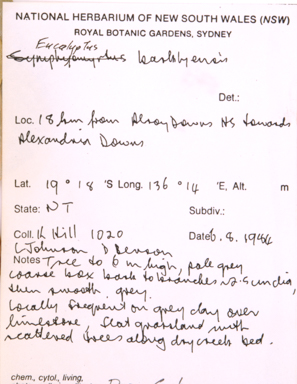 NATIONAL HERBARIUM OF NEW SOUTH WALES (NSW)
ROYAL BOTANIC GARDENS, SYDNEY
Eucalyptus
Symphyomyrtus barklyensis
Det.:
Loc. 18 km from Alroy Downs HS towards
Alexandria Downs
Lat. 19 ° 18 'S Long. 136 ° 14 'E, Alt. m
State: NT Subdiv.:
Coll. K Hill 1020 Date 6.8.1984
L Johnson D Benson
Notes Tree to 6 m high, pale grey
coarse box bark to branches dia,
then smooth grey.
Locally frequent on grey clay over
limestone. Flat grassland with
scattered trees along dry creek bed.
chem., cytol, living,